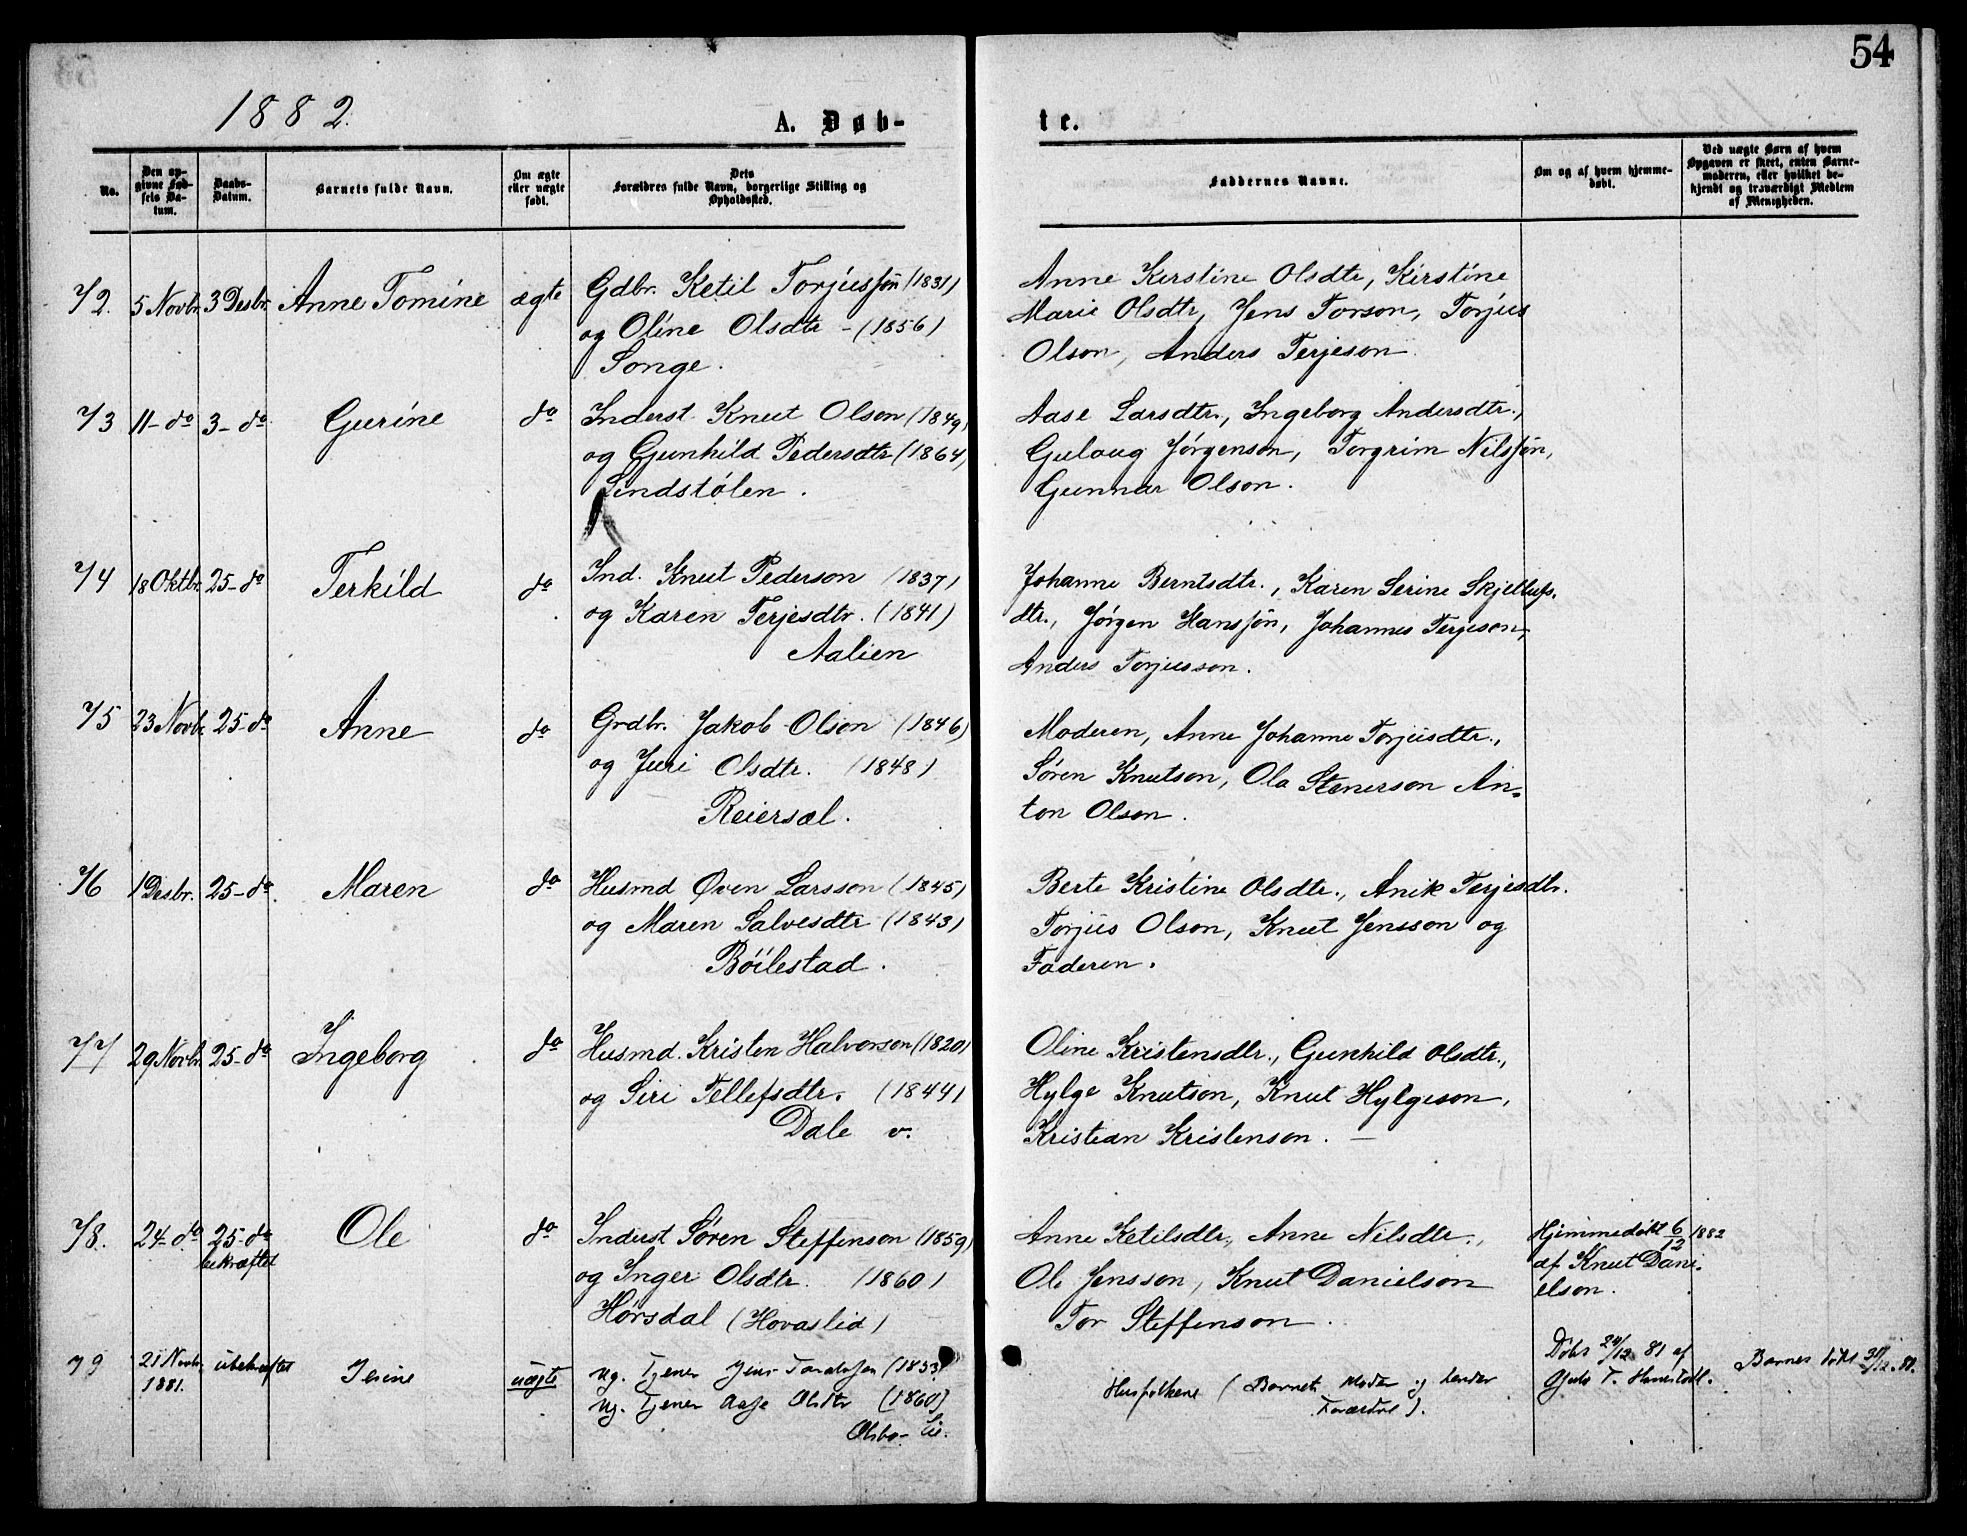 54
1882.
A. Døb-
te.
No.
Den op-
givne Fød-
sels Da-
tum.
Daabs-
Datum.
Barnets fulde Navn.
Om ægte
eller uægte
født.
Dets
Forældres fulde Navn, borgerlige Stilling og
Opholdssted.
Faddernes Navne.
Om og af hvem hjemme-
døbt.
Ved uægte Børn af hvem
Opgaven er skeet, enten Barne-
moderen, eller hvilket be-
kjendt og troværdigt Medlem
af Menigheden.
72. 5 Novbr. 3 Desbr. Anne Tomine ægte
Gdbr. Ketil Torjusson (1831)
og Oline Olsdtr - (1856)
Songe.
Anne Kerstine Olsdtr, Kirstine
Marie Olsdtr, Jens Torson, Torjus
Olson, Anders Terjeson
73 11- do 3- do Gurine do
Inderst. Knut Olson (1849)
og Gunhild Pedersdtr (1864)
Lindstølen.
Aase Larsdtr., Ingeborg Andersdtr.,
Guloug Jørgenson, Torgrim Nilssøn,
Gunnar Olson.
74 18 Oktbr. 25- do Terkild do
Ind. Knut Pederson (1837)
og Karen Terjesdtr. (1841)
Aalien
Johanne Berntsdtr., Karen Serine Skjellufs-
dtr., Jørgen Hanssøn, Johannes Terjeson,
Anders Torjusson.
75 23 Novbr. 25- do Anne do
Grdbr. Jakob Olson (1846)
og Juri Olsdtr. (1848)
Reiersøl.
Moderen, Anne Johanne Torjusdtr.,
Søren Knutson, Ola Stenerson An-
ton Olson.
76 1 Desbr. 25- do. Maren do
Husmd Øven Larsson (1845)
og Maren Salvesdtr (1843)
Bøilestad.
Berte Kristine Olsdtr., Anik Terjesdtr.
Torjus Olson, Knut Jensson og
Faderen.
77 29 Novbr. 25- do Ingeborg do
Husmd. Kristen Halvorson (1820)
og Siri Tellefsdtr. (1844)
Dale v.
Oline Kristensdtr., Gunhild Olsdtr.,
Hylge Knutson, Knut Hylgeson,
Kristian Kristenson. -
78. 24- do 25- do Ole do
bekræftet
Inderst Søren Steffenson (1859)
og Inger Olsdtr. (1860)
Hørsdal (Hovaslid)
Anne Ketilsdtr., Anne Nilsdtr.,
Ole Jensson, Knut Danielson
Tor Steffenson.
Hjimmedøbt 6/12 1882
af Knut Dani-
elson.
79 21 Novbr. 1881. ubekræftet Jesine uægte
Ug. Tjener Jens (1853)
Ug. Tjener Aase Olsdtr (1860)
Olsbo- lie.
Husfolkene (Barnets Moder og
).
Døbt 24/12 81 af
Barnet døbt 30/12. 81.